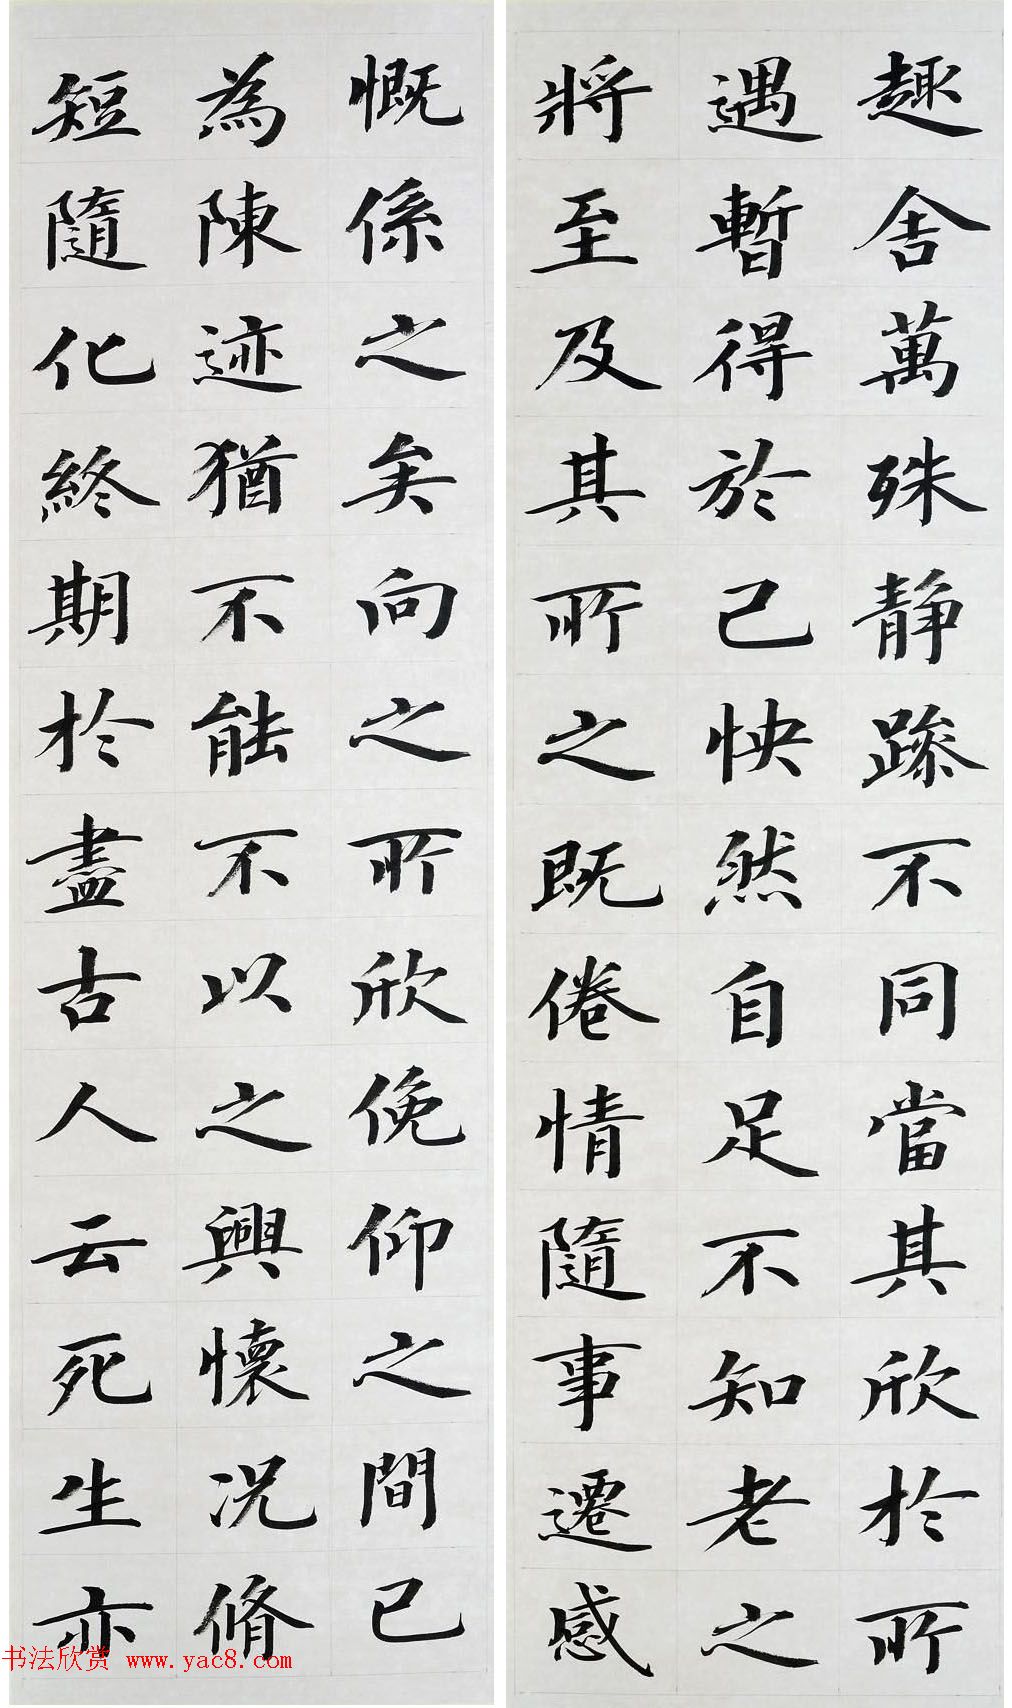 趣舍萬殊静踈不同當其欣於所
遇暫得於己怏然自足不知老之
將至及其所之既倦情隨事遷感
慨係之矣向之所欣俛仰之間已
為陳迹猶不能不以之興懷况脩
短隨化終期於盡古人云死生亦
书法欣赏 www.yac8.com